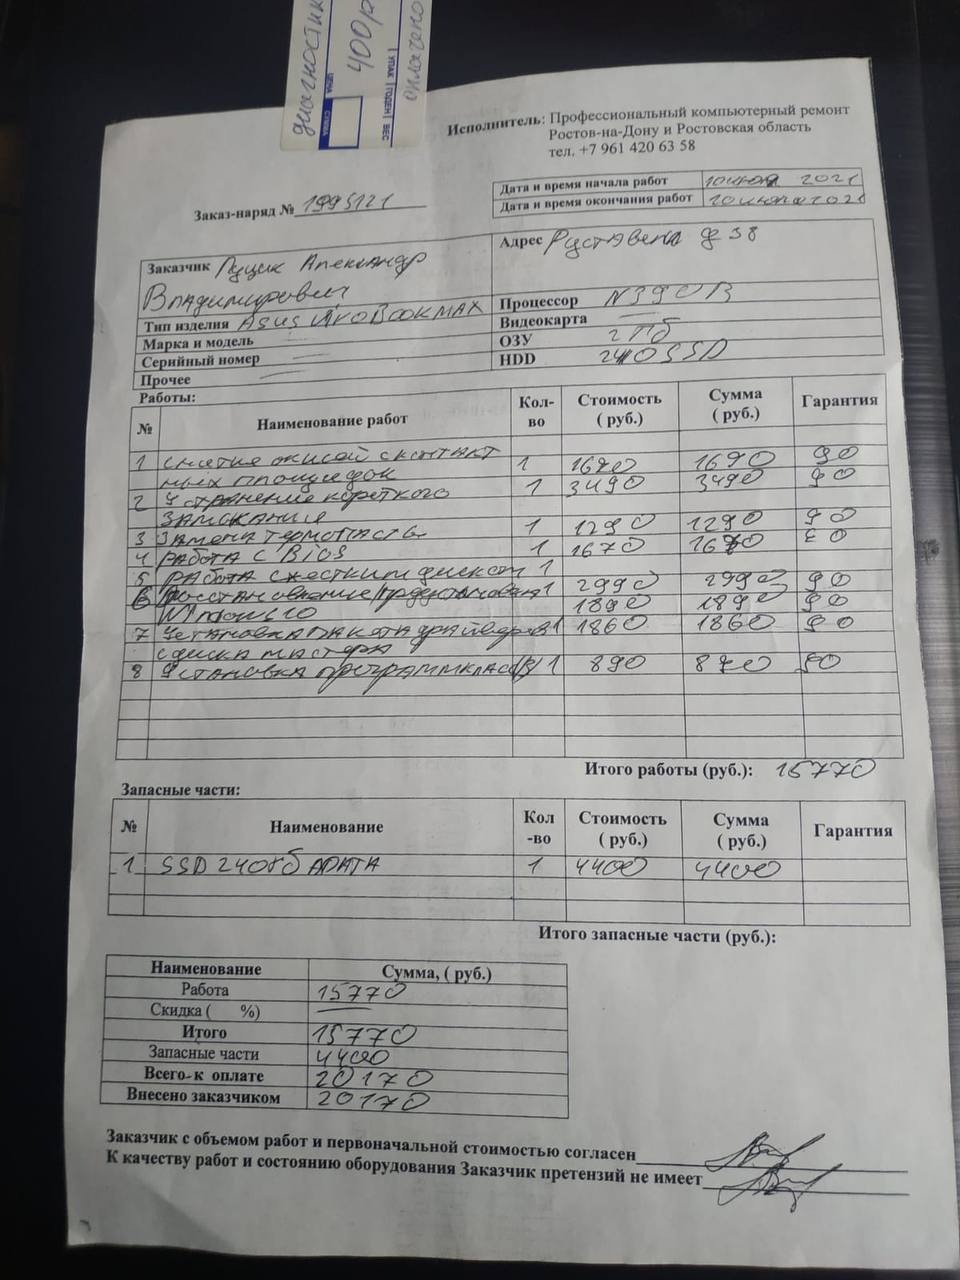 диагностика
ЦЕНА
СУММА
400р
УПАК
ГОДЕН
ВЕС
оплачено
Исполнитель: Профессиональный компьютерный ремонт
Ростов-на-Дону и Ростовская область
тел. +7 961 420 63 58
Заказ-наряд № 1995121
Дата и время начала работ 10 июля 2021
Дата и время окончания работ 10 июля 2021
Заказчик Александр
Владимирович
Адрес Руставели д 38
Тип изделия ASUS VivoBOOKMAX
Процессор
Марка и модель
Видеокарта
Серийный номер
ОЗУ 2 Гб
Прочее
HDD 240 SSD
Работы:
№ Наименование работ Кол-во Стоимость (руб.) Сумма (руб.) Гарантия
1 снятие окисей с контакт 1 1690 1690 90
ных площадок
2 Устранение короткого 1 3490 3490 90
замыкания
3 Замена термопасты 1 1290 1290 90
4 Работа с Bios 1 1670 1670
5 Работа с жестким диском 1 2990 2990 90
6 Восстановление 1 1890 1890 90
7 Установка пакета драйверов 1 1860 1860 90
с диска мастера
8 Установка программ класс 1 890 890 90
Итого работы (руб.): 15770
Запасные части:
№ Наименование Кол-во Стоимость (руб.) Сумма (руб.) Гарантия
1 SSD 240Гб ADATA 1 4400 4400
Итого запасные части (руб.):
Наименование Сумма, ( руб.)
Работа 15770
Скидка ( %)
Итого 15770
Запасные части 4400
Всего-к оплате 20170
Внесено заказчиком 20170
Заказчик с объемом работ и первоначальной стоимостью согласен
К качеству работ и состоянию оборудования Заказчик претензий не имеет